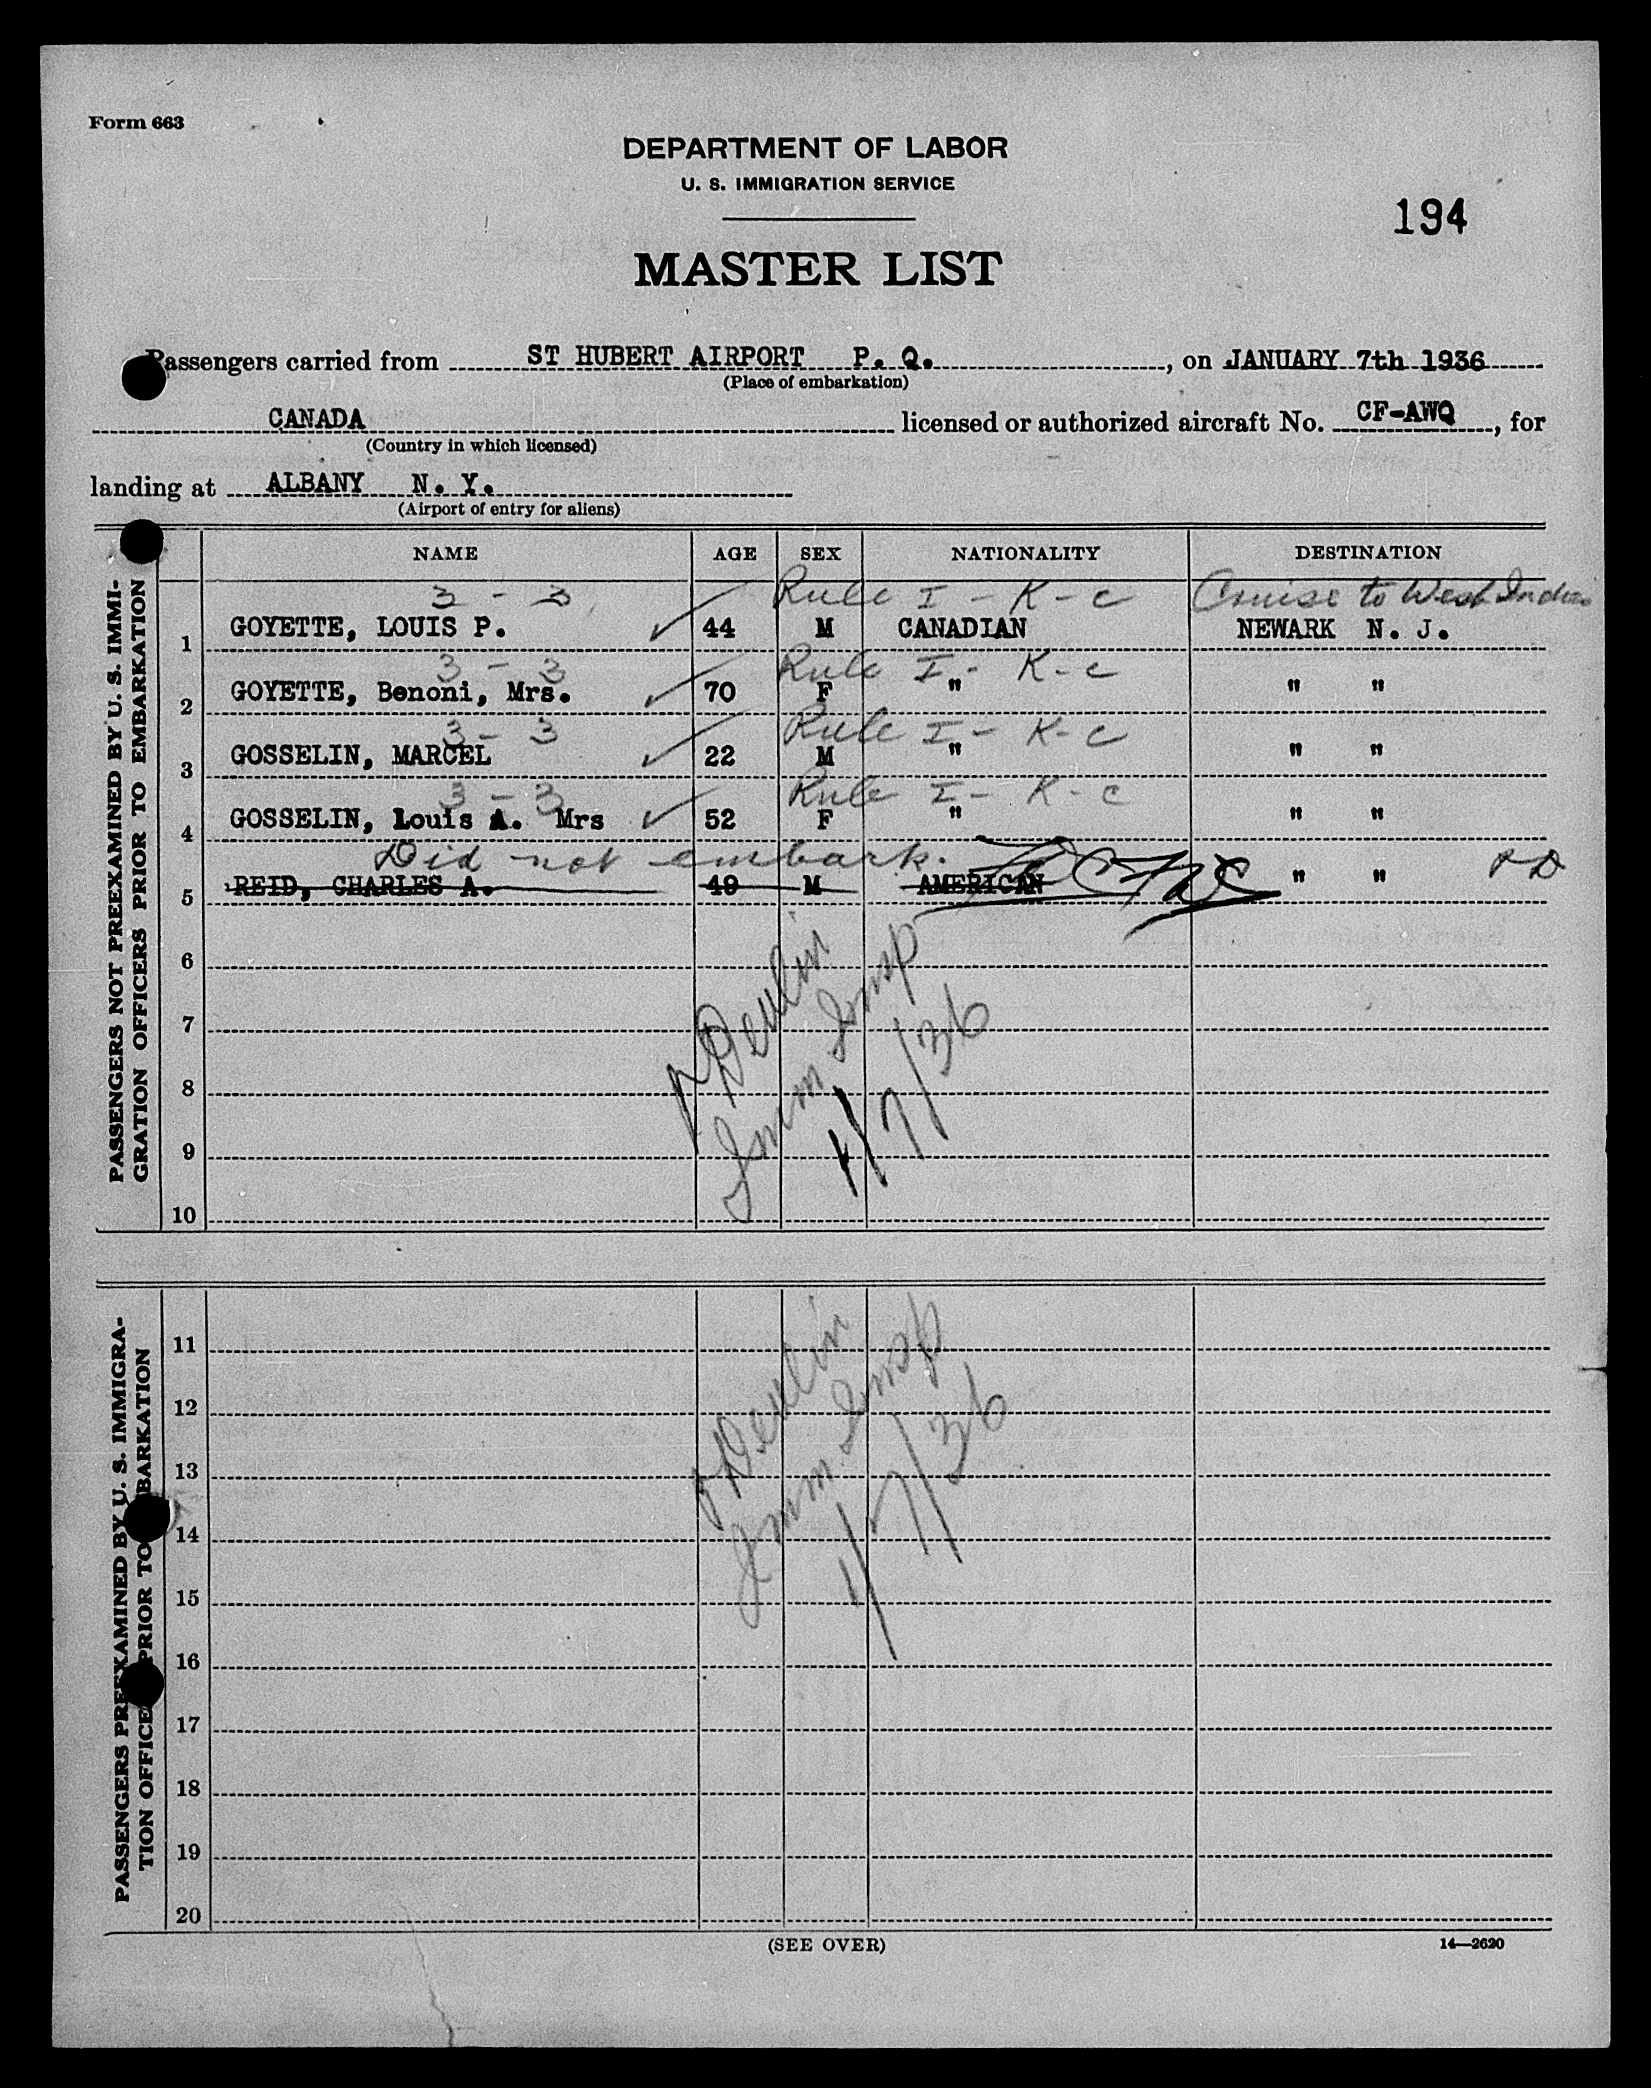 Form 663
DEPARTMENT OF LABOR
U. S. IMMIGRATION SERVICE
194
MASTER LIST
Passengers carried from ST HUBERT AIRPORT P. Q., on JANUARY 7th 1936
(Place of embarkation)
CANADA licensed or authorized aircraft No. CF-AWQ, for
(Country in which licensed)
landing at ALBANY N. Y.
(Airport of entry for aliens)
NAME AGE SEX NATIONALITY DESTINATION
PASSENGERS NOT PREEXAMINED BY U. S. IMMI-
GRATION OFFICERS PRIOR TO EMBARKATION
3 - 3 Rule I - K - c Cruise to West Indies
1 GOYETTE, LOUIS P. ✓ 44 M CANADIAN NEWARK N. J.
3 - 3 Rule I - K - c
2 GOYETTE, Benoni, Mrs. ✓ 70 F " " "
3 - 3 Rule I - K - c
3 GOSSELIN, MARCEL ✓ 22 M " " "
3 - 3 Rule I - K - c
4 GOSSELIN, Louis A. Mrs ✓ 52 F " " "
Did not embark.
5 REID, CHARLES A. 49 M AMERICAN " "
6
7
8
9
10
Devlin
Imm Insp
1/7/36
PASSENGERS PREEXAMINED BY U. S. IMMIGRA-
TION OFFICE PRIOR TO BARKATION
11
12
13
14
15
16
17
18
19
20
Devlin
Imm. Insp
1/7/36
(SEE OVER)
14—2620